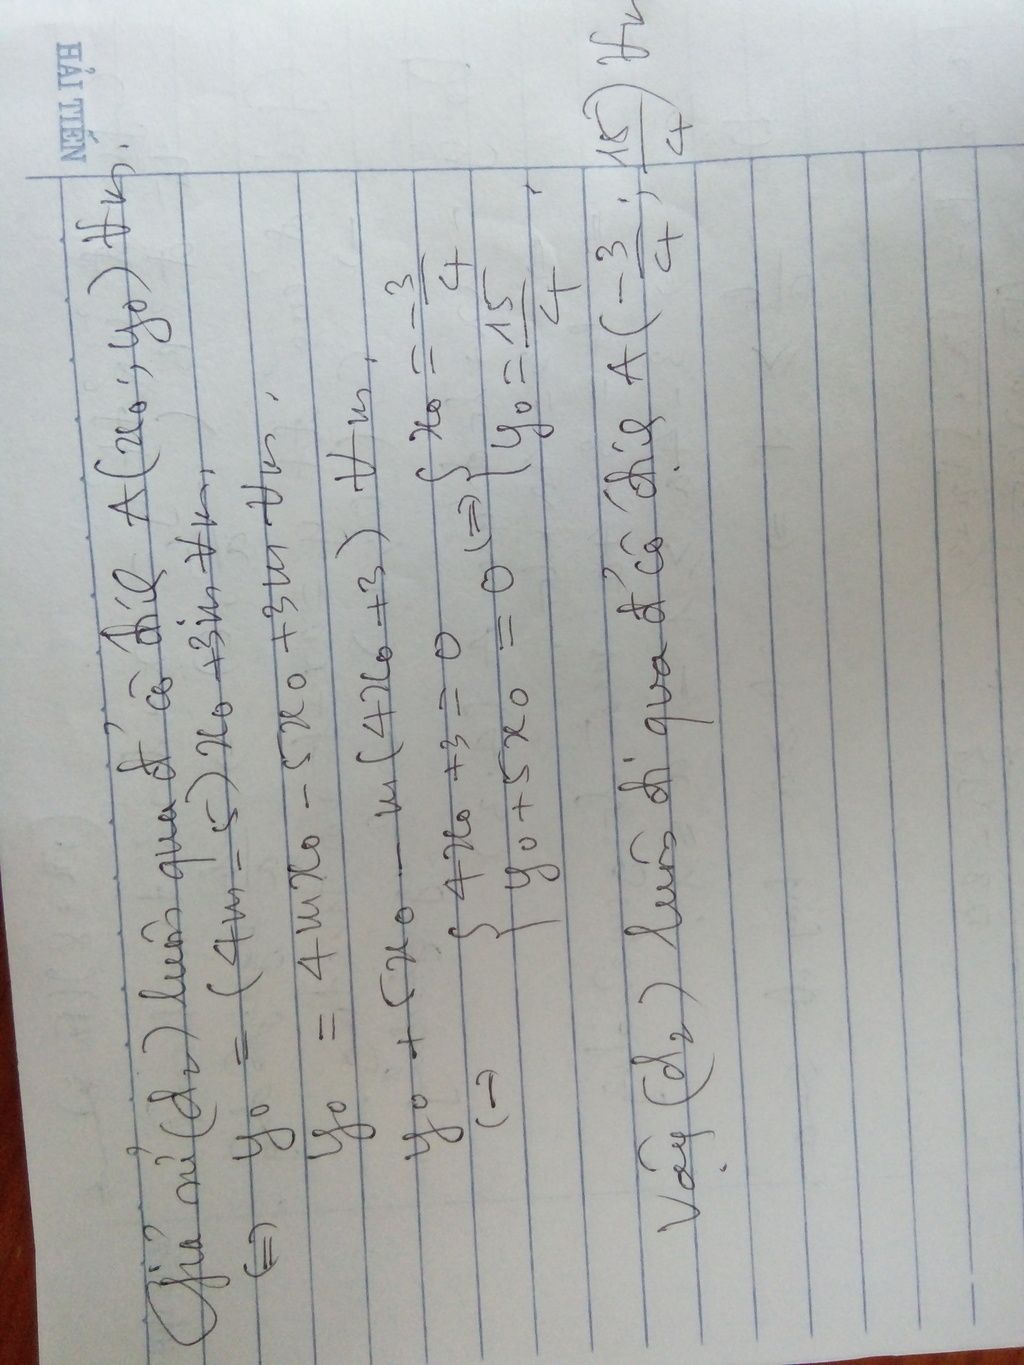 HẢI TIẾN
Giả sử (d₂) luôn qua đ' cố định A(x₀; y₀) ∀m.
(=) y₀ = (4m-5)x₀ +3m ∀m.
y₀ = 4mx₀ - 5x₀ +3m ∀m.
y₀ + 5x₀ - m(4x₀ +3) ∀m.
(=) { 4x₀ +3 = 0 (=) { x₀ = -3/4
{ y₀ + 5x₀ = 0 { y₀ = 15/4.
Vậy (d₂) luôn đi qua đ' cố định A(-3/4; 15/4) ∀m